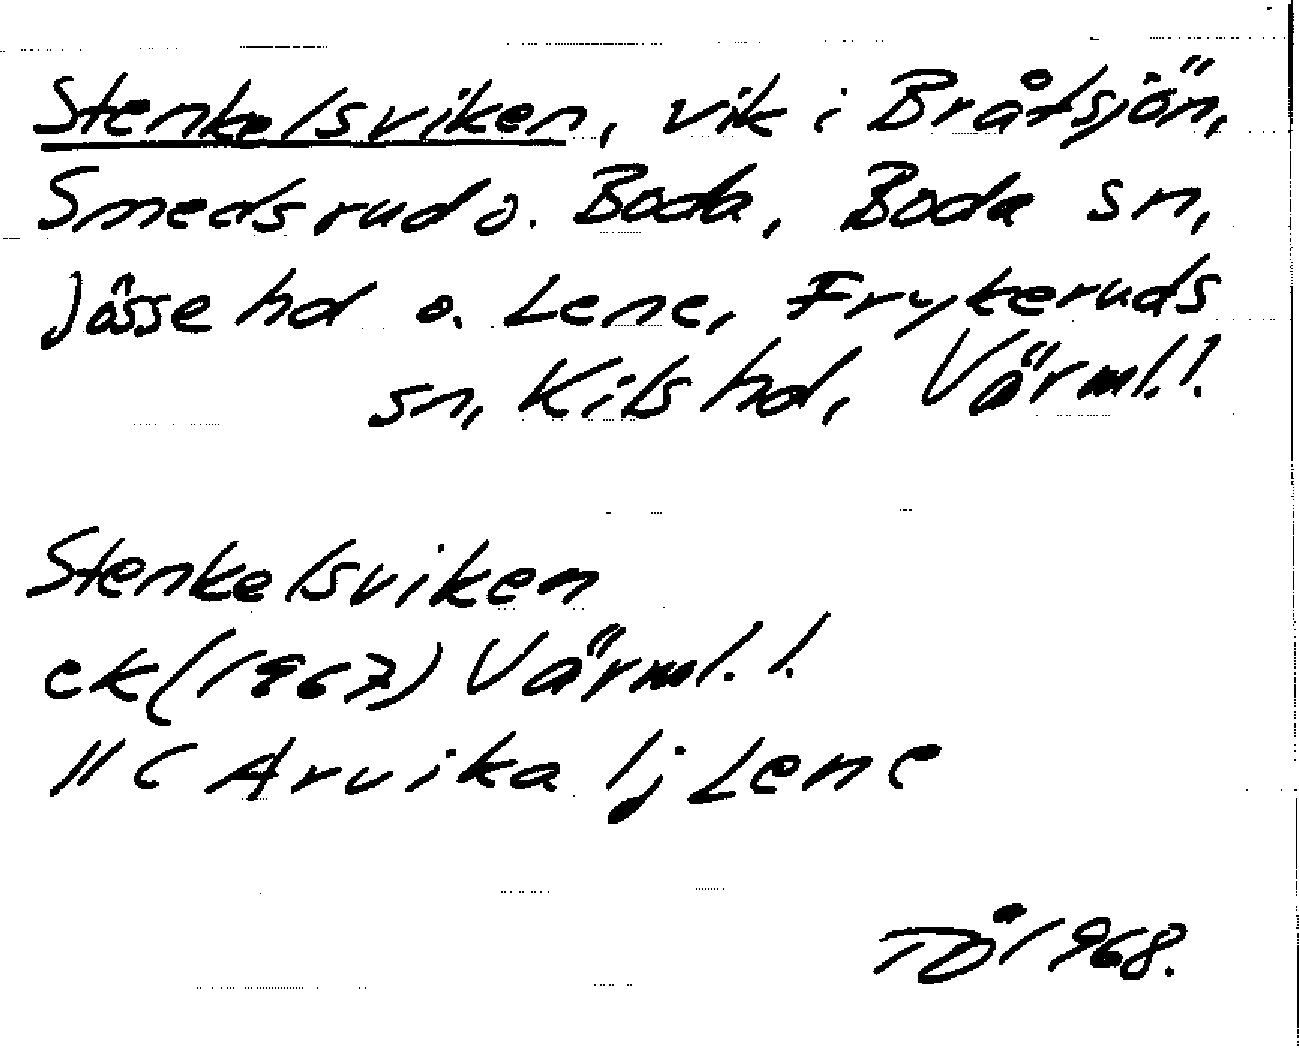 Stenkelsviken, vik i Bråtsjön,
Smedsrud o. Boda, Boda sn,
Jösse hd o. Lene, Frykeruds
sn, Kils hd, Värml. l.
Stenkelsviken
ek (1967) Värml. l.
11 C Arvika lj Lene
1968.